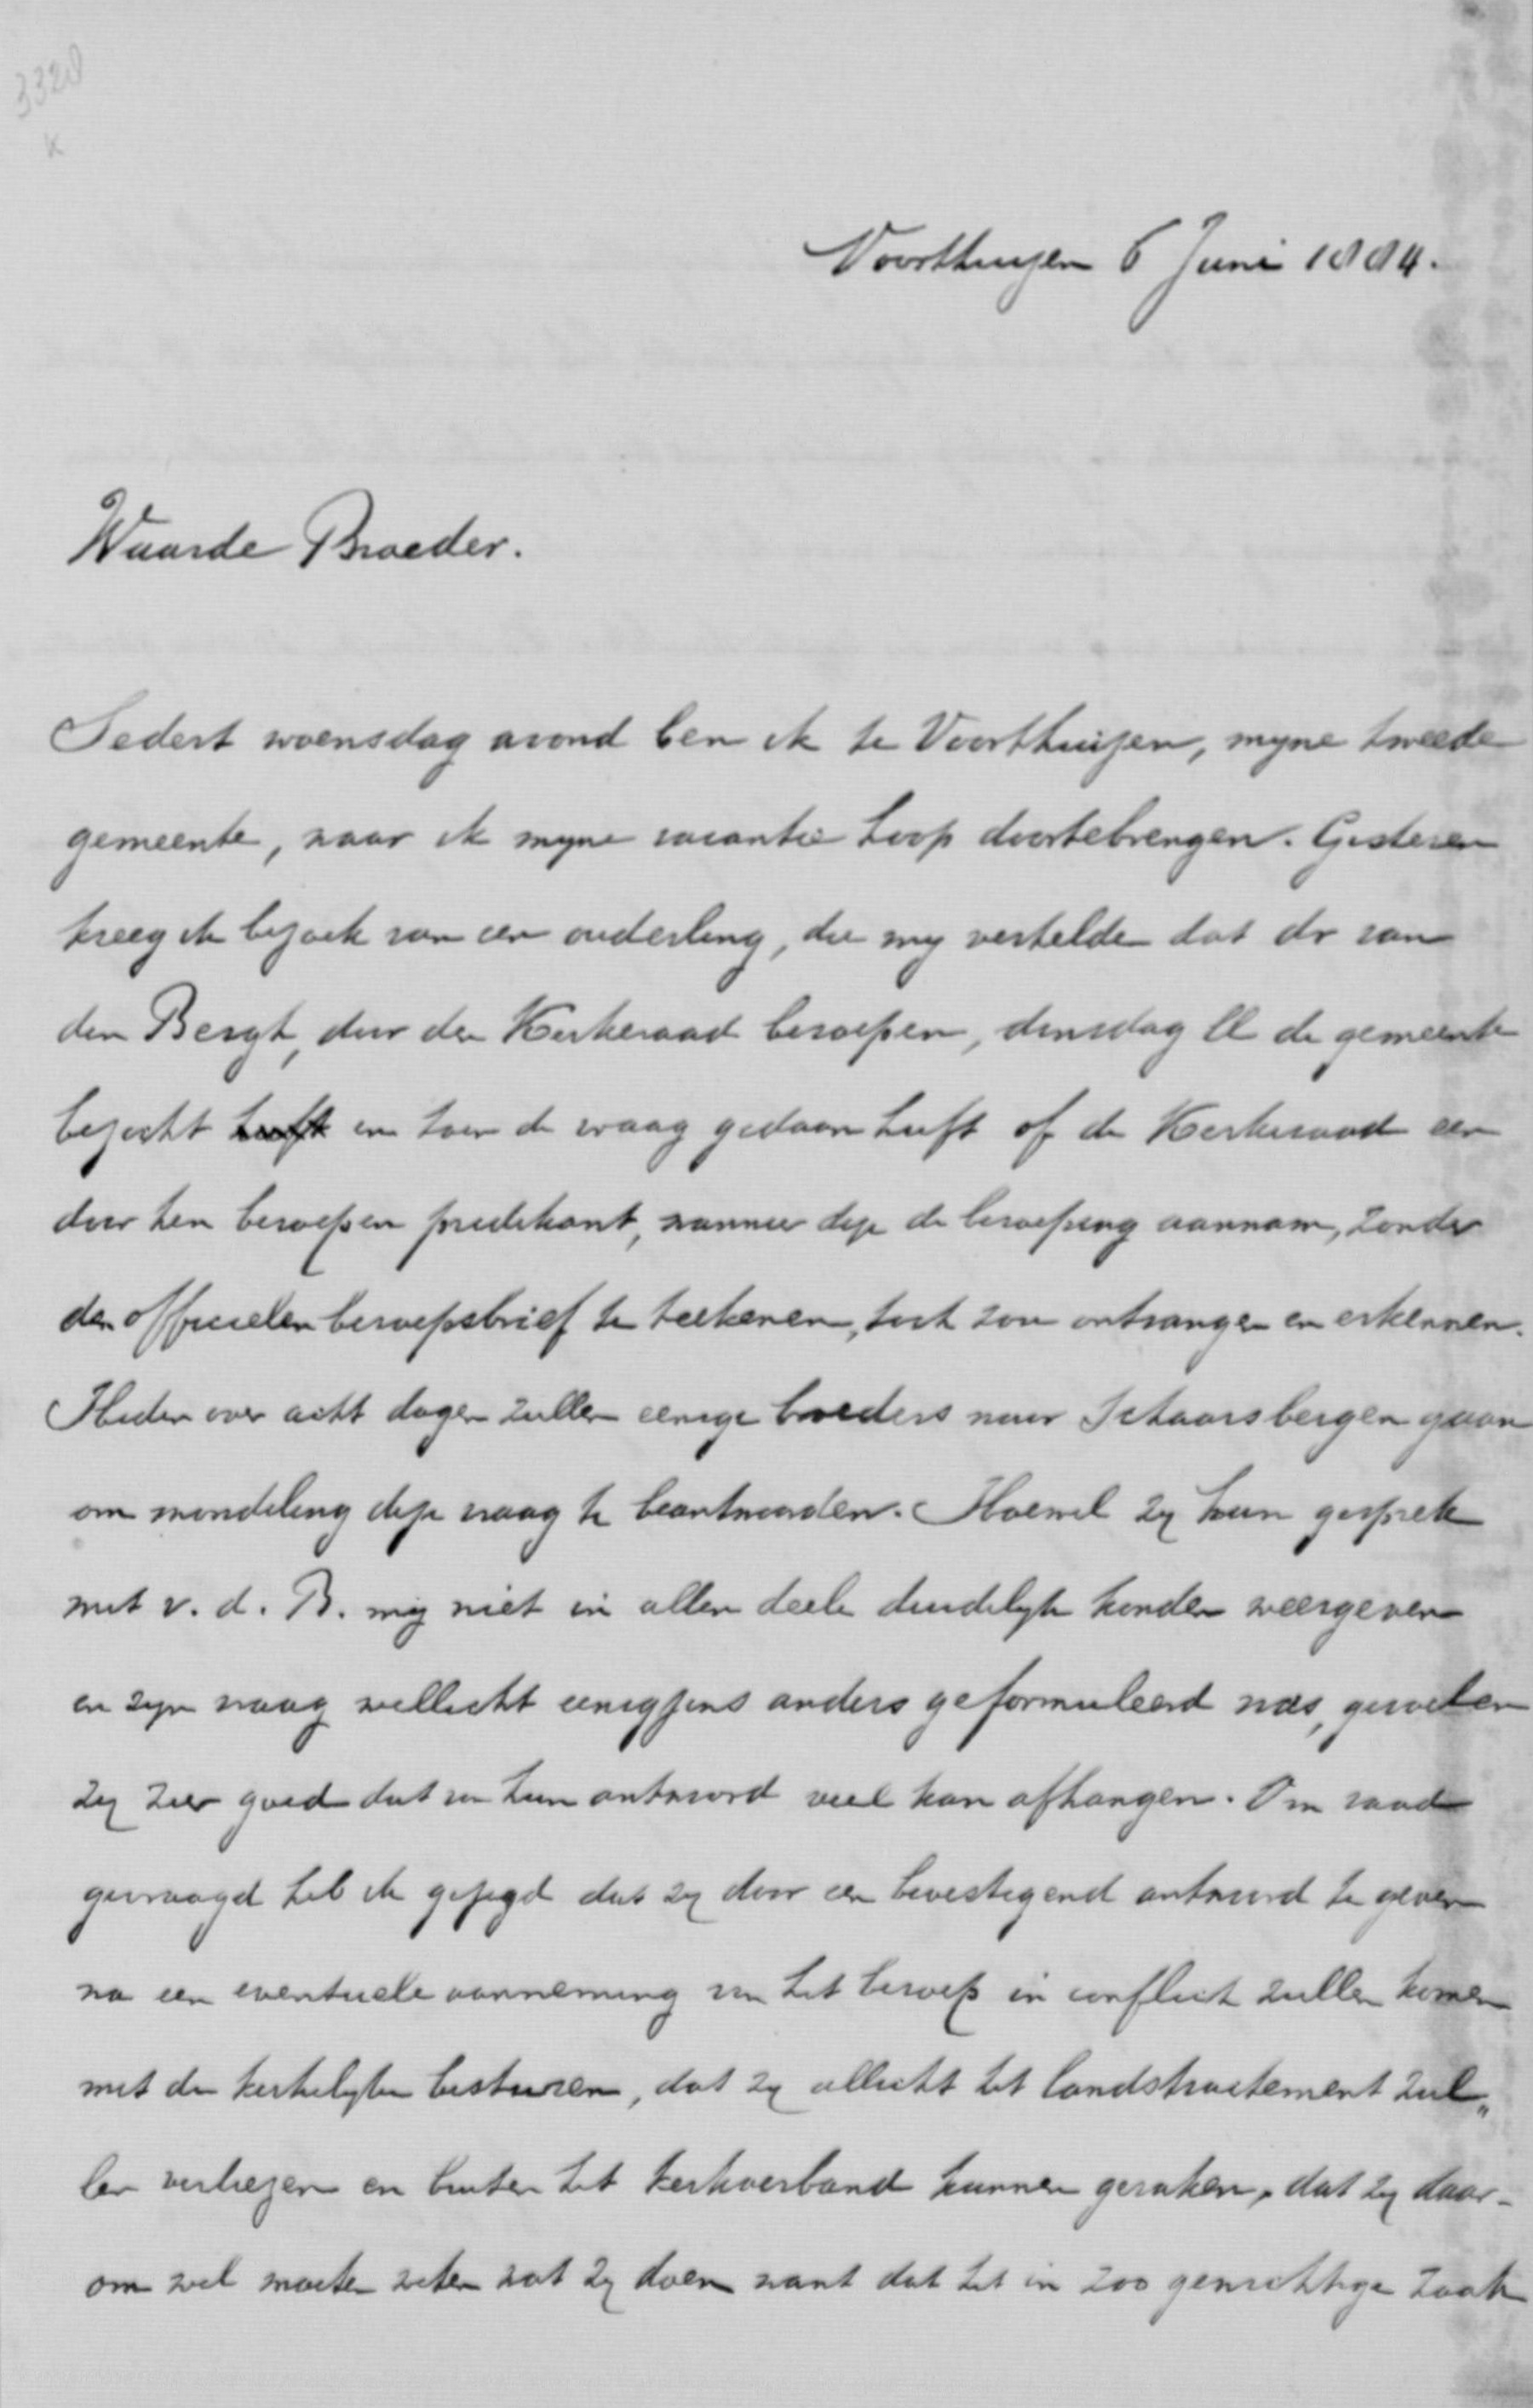 3320
K
Voorthuizen 6 Juni 1884.
Waarde Broeder.
Sedert woensdag avond ben ik te Voorthuizen, myne tweede
gemeente, waar ik myne vacantie hoop doortebrengen. Gisteren
kreeg ik bezoek van een ouderling, die my vertelde dat dr van
den Bergh, door den Kerkeraad beroepen, dinsdag ll de gemeente
bezocht heeft en toen de vraag gedaan heeft of de Kerkeraad een
door hen beroepen predikant, wanneer deze de beroeping aannam, zonder
den officieelen beroepsbrief te teekenen, toch zou ontvangen en erkennen.
Heden over acht dagen zullen eenige broeders naar Schaarsbergen gaan
om mondeling deze vraag te beantwoorden. Hoewel zy hun gesprek
met v. d. B. mij niet in allen deele duidelyk konden weergeven
en zyn vraag wellicht eenigzins anders geformuleerd was, gevoelen
zy zeer goed dat van hun antwoord veel kan afhangen. Om raad
gevraagd heb ik gezegd dat zy door een bevestigend antwoord te geven
na een eventueele aanneming van het beroep in conflict zullen komen
met de kerkelyke besturen, dat zy allicht het landstractement zul„
len verliezen en buiten het kerkverband kunnen geraken, dat zy daar-
om wel moeten weten wat zy doen want dat het in zoo gewichtige zaak